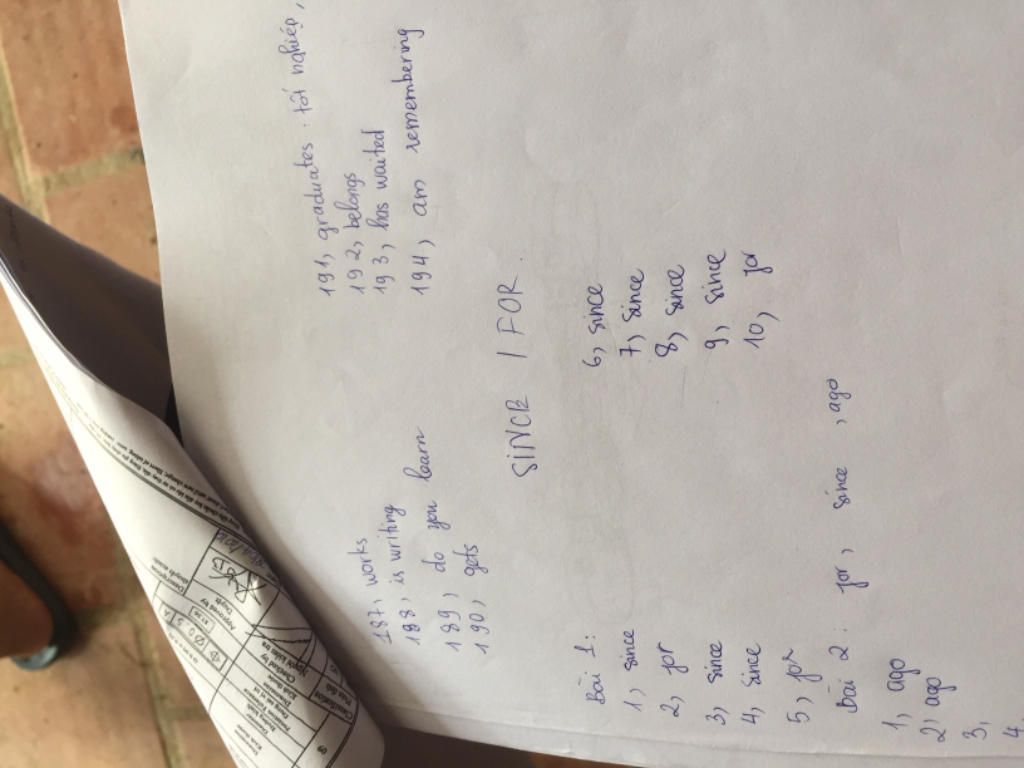 187, works
188, is writing
189, do you learn
190, gets
191, graduates : tốt nghiệp,
192, belongs
193, has waited
194, am remembering
SINCE / FOR
Bài 1:
1, since
2, for
3, since
4, since
5, for
6, since
7, since
8, since
9, since
10, for
Bài 2: for, since, ago
1, ago
2, ago
3,
4.
09
Classification
Description
Approved by
Duyệt
Checked by
Người kiểm tra